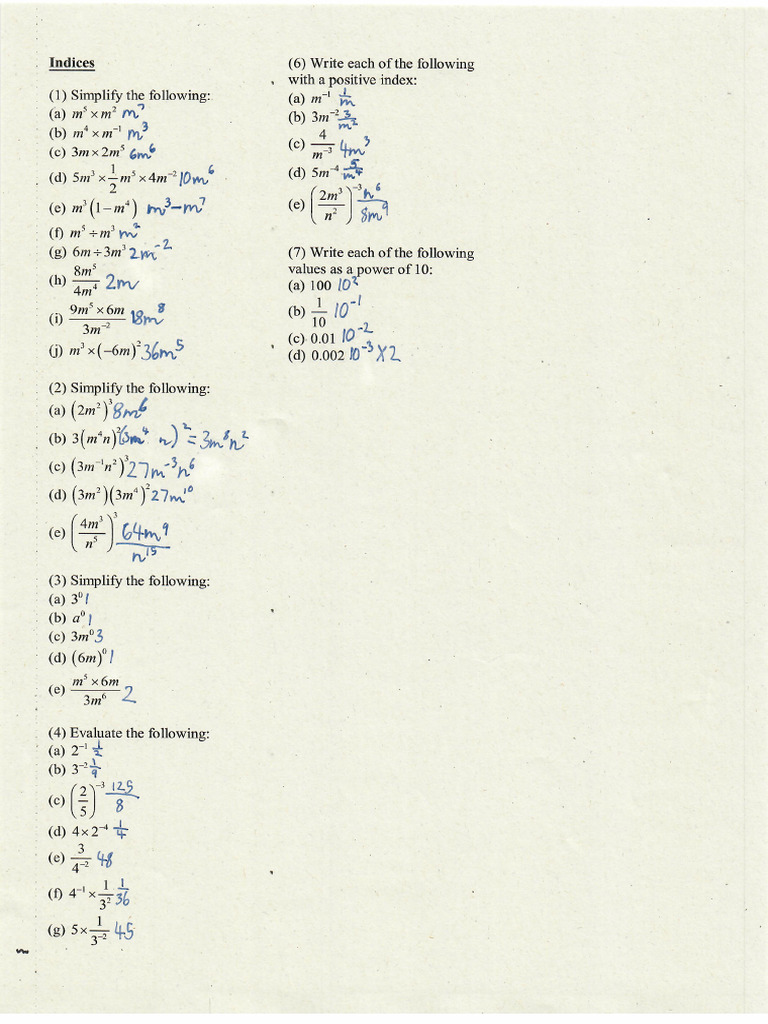 Indices
(1) Simplify the following:
(a) m⁵ × m² m⁷
(b) m⁴ × m⁻¹ m³
(c) 3m × 2m⁵ 6m⁶
(d) 5m³ × 1/2 m⁵ × 4m⁻² 10m⁶
(e) m³(1 − m⁴) m³−m⁷
(f) m⁵ ÷ m³ m²
(g) 6m ÷ 3m³ 2m⁻²
(h) 8m⁵/4m⁴ 2m
(i) 9m⁵ × 6m/3m⁻² 18m⁸
(j) m³ × (−6m)² 36m⁵
(2) Simplify the following:
(a) (2m²)³ 8m⁶
(b) 3(m⁴n)² (3m⁴ n)² = 3m⁸n²
(c) (3m⁻¹n²)³ 27m⁻³n⁶
(d) (3m²)(3m⁴)² 27m¹⁰
(e) (4m³/n⁵)³ 64m⁹/n¹⁵
(3) Simplify the following:
(a) 3⁰ 1
(b) a⁰ 1
(c) 3m⁰ 3
(d) (6m)⁰ 1
(e) m⁵ × 6m/3m⁶ 2
(4) Evaluate the following:
(a) 2⁻¹ 1/2
(b) 3⁻² 1/9
(c) (2/5)⁻³ 125/8
(d) 4 × 2⁻⁴ 1/4
(e) 3/4⁻² 48
(f) 4⁻¹ × 1/3² 1/36
(g) 5 × 1/3⁻² 45
(6) Write each of the following
with a positive index:
(a) m⁻¹ 1/m
(b) 3m⁻² 3/m²
(c) 4/m⁻³ 4m³
(d) 5m⁻⁴ 5/m⁴
(e) (2m³/n²)⁻³ n⁶/8m⁹
(7) Write each of the following
values as a power of 10:
(a) 100 10²
(b) 1/10 10⁻¹
(c) 0.01 10⁻²
(d) 0.002 10⁻³ × 2